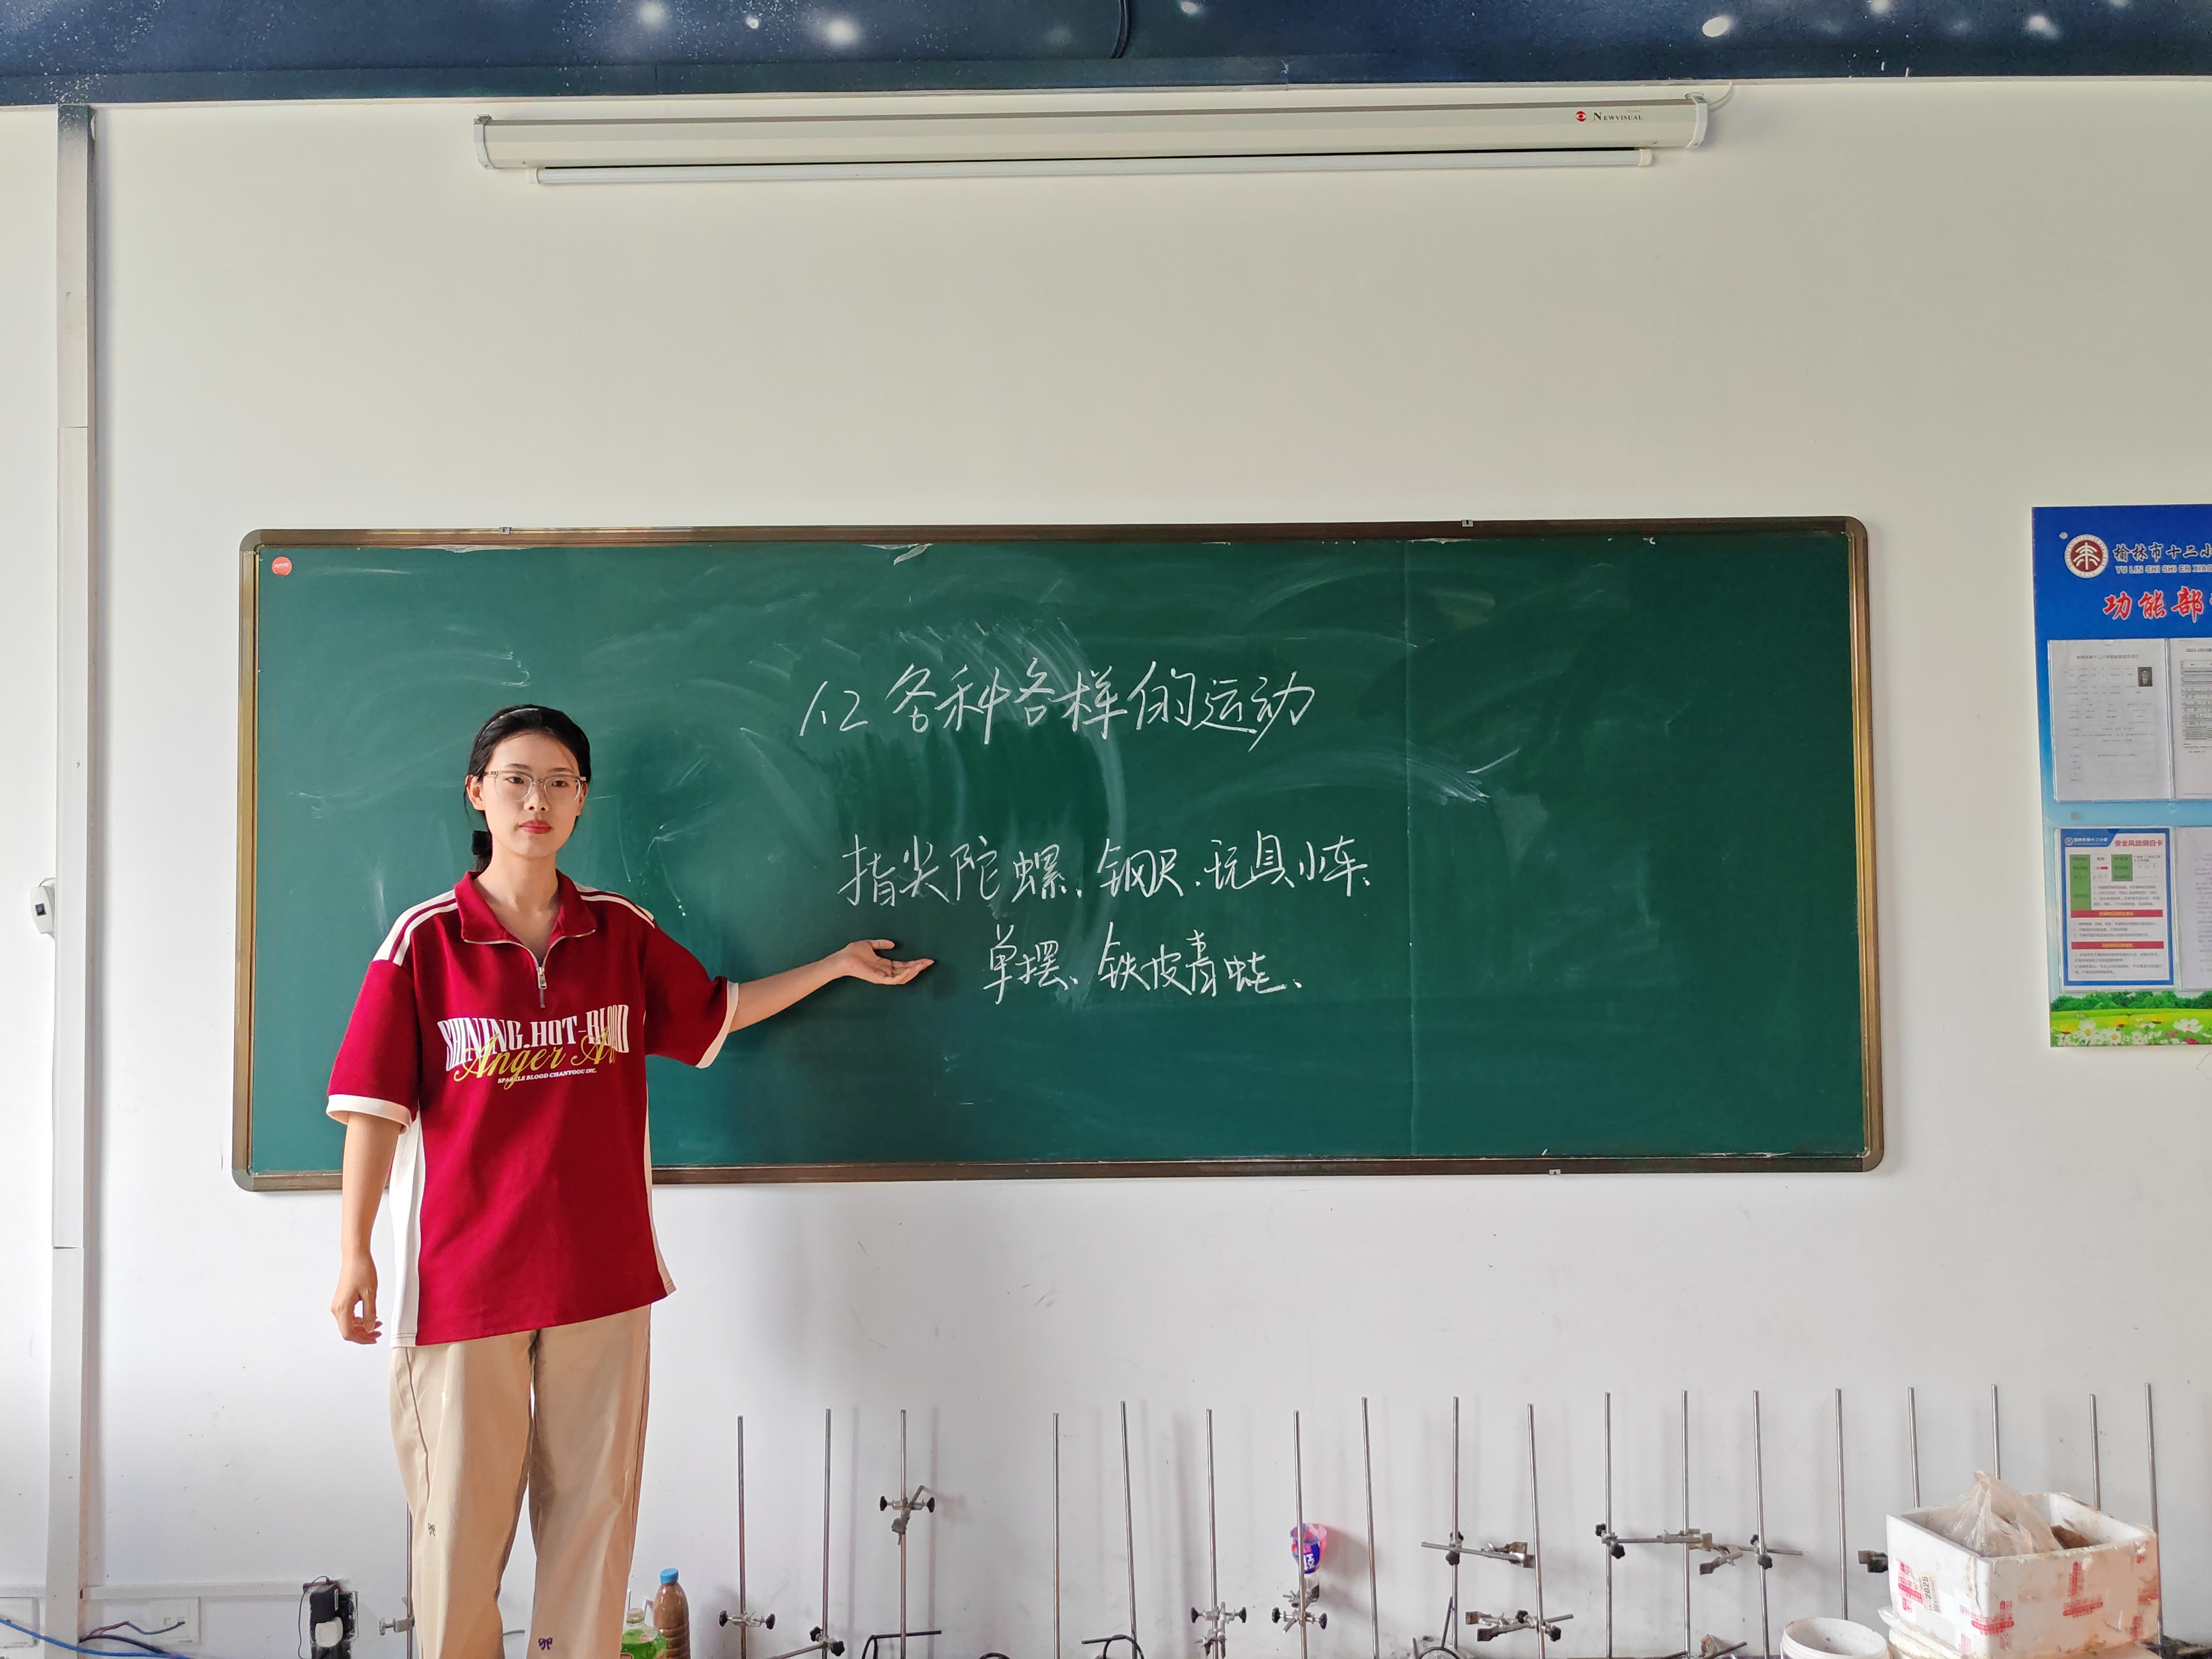 NEWVISUAL
1.2 各种各样的运动
指尖陀螺、钢尺、玩具小车、
单摆、铁皮青蛙、
SHINING.HOT-BLOOD
Anger
SPARKLE BLOOD CHANYOOU INC.
榆林市十二小
YU LIN SHI SHI ER XIAO
功能部
安全风险明白卡